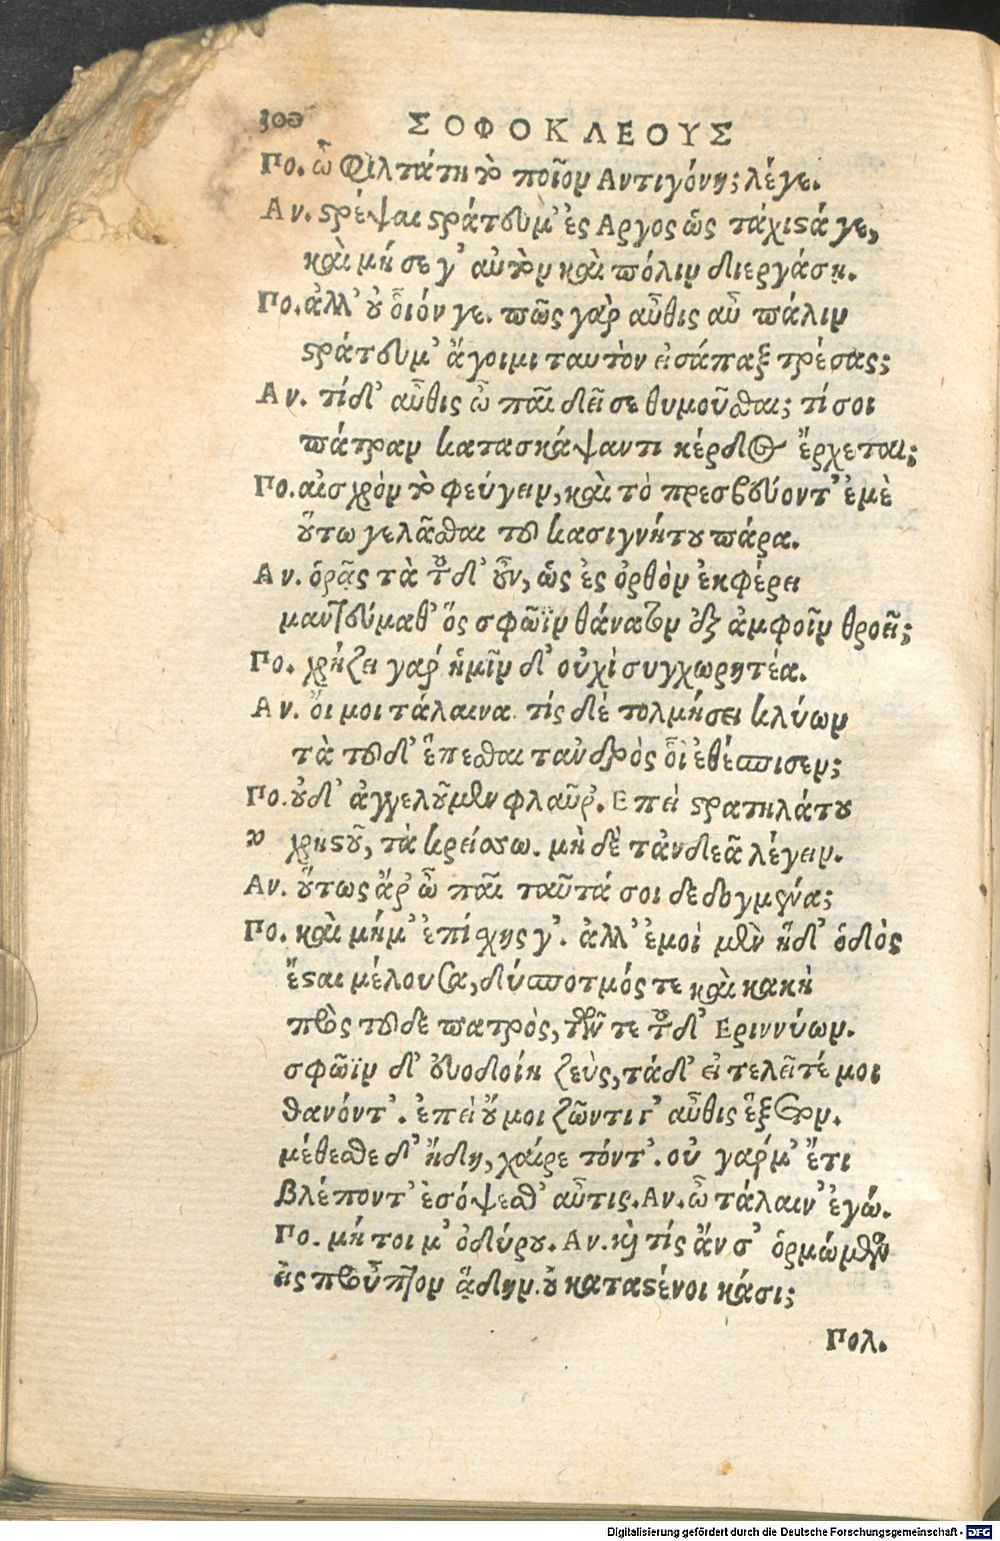 300 ΣΟΦΟΚΛΕΟΥΣ
Πο. ὦ φιλτάτη τὸ ποῖον Αντιγόνη; λέγε.
Αν. στρέψαι στράτευμ' ἐς Αργος ὡς τάχιστά γε,
καὶ μή σε γ' αὐτὸν καὶ πόλιν διεργάσῃ.
Πο. ἀλλ' οὐ οἷόν γε. πῶς γὰρ αὖθις αὖ πάλιν
στράτευμ' ἄγοιμι ταυτὸν εἰσάπαξ τρέσας;
Αν. τί δ' αὖθις ὦ παῖ δεῖ σε θυμοῦσθαι; τί σοι
πάτραν κατασκάψαντι κέρδος ἔρχεται;
Πο. αἰσχρὸν τὸ φεύγειν, καὶ τὸ πρεσβεύοντ' ἐμὲ
οὕτω γελᾶσθαι τοῦ κασιγνήτου πάρα.
Αν. ὁρᾷς τὰ τοῦδ' οὖν, ὡς ἐς ὀρθὸν ἐκφέρει
μαντεύμαθ' ὃς σφῶϊν θάνατον ἐξ ἀμφοῖν θροεῖ;
Πο. χρῄζει γάρ ἡμῖν δ' οὐχὶ συγχωρητέα.
Αν. οἴ μοι τάλαινα. τίς δὲ τολμήσει κλύων
τὰ τοῦδ' ἕπεσθαι τανδρὸς οἷ ἐθέσπισεν;
Πο. οὐδ' ἀγγελοῦμεν φλαῦρ. Επεὶ στρατηλάτου
χρηστοῦ, τὰ κρείσσω. μὴ δὲ τἀνδεᾶ λέγειν.
Αν. οὕτως ἄρ' ὦ παῖ ταῦτά σοι δεδογμένα;
Πο. καὶ μή μ' ἐπίσχῃς γ'. ἀλλ' ἐμοὶ μὲν ἥδ' ὁδὸς
ἔσται μέλουσα, δύσποτμός τε καὶ κακὴ
πρὸς τοῦδε πατρὸς, τῶν τε τοῦδ' Εριννύων.
σφῶϊν δ' εὐοδοίη ζεὺς, τάδ' εἰ τελεῖτέ μοι
θανόντ'. ἐπεὶ οὔ μοι ζῶντι γ' αὖθις ἕξετον.
μέθεσθε δ' ἤδη, χαίρετόντ'. οὐ γάρ μ' ἔτι
βλέποντ' ἐσόψεσθ' αὖτις. Αν. ὦ τάλαιν' ἐγώ.
Πο. μή τοι μ' ὀδύρου. Αν. καὶ τίς ἄν σ' ὁρμώμενον
εἰς προὖπτον ᾅδην. οὐ καταστένοι κάσι;
Πολ.
Digitalisierung gefördert durch die Deutsche Forschungsgemeinschaft - DFG